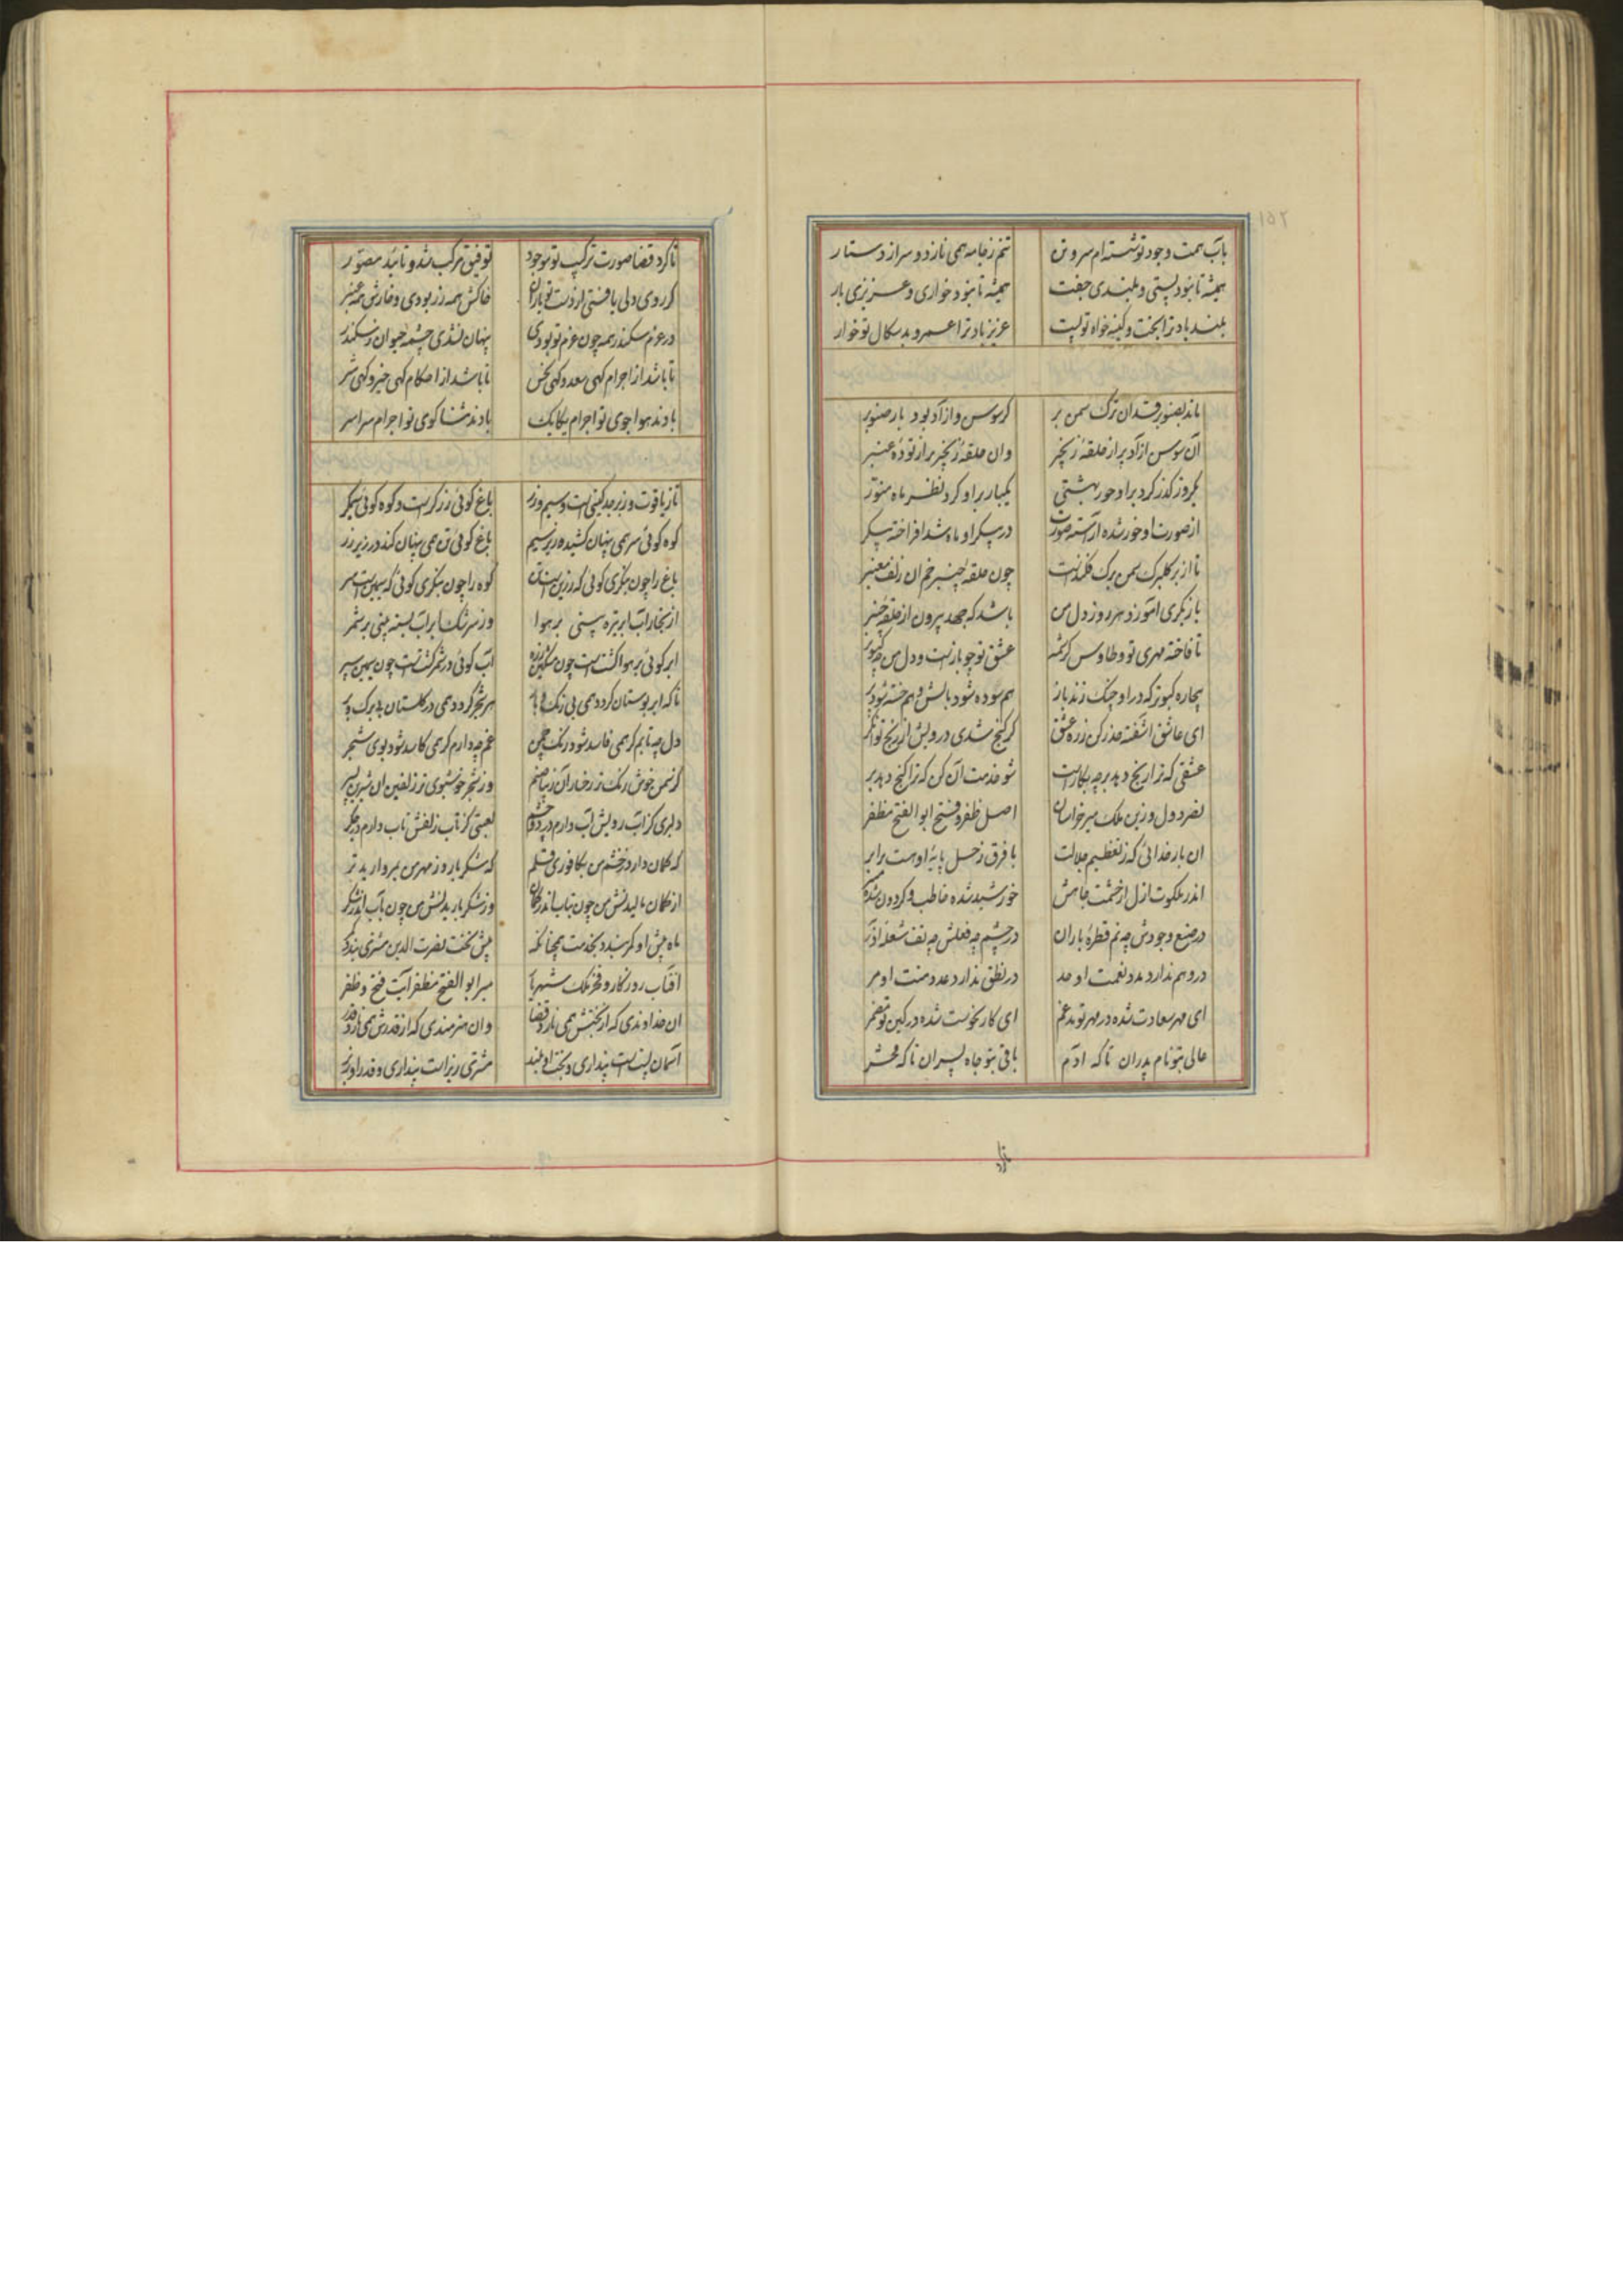 ۱۵۲
بآب همت وجود تو شسته‌ام سر و تن تنم ز جامه همی نازد و سر از دستار
همیشه تا بود پستی و بلندی جفت همیشه تا بود خواری و عزیزی یار
بلند باد ترا بخت و کینه خواه تو پست عزیز باد ترا عمر و بدسگال تو خوار
ماند بصنوبر قد آن ترک سمن بر گر سوسن آزاد بود بار صنوبر
آن سوسن آزاد پر از حلقه زنجیر وان حلقه زنجیر پر از توده عنبر
یکروز گذر کرد بر او حور بهشتی یکبار بر او کرد نظر ماه منور
از صورت او حور شده آراسته صورت در پیکر او ماه شد افراخته پیکر
تا از بر گلبرگ سمن برگ فکندست چون حلقه چنبر خم آن زلف معنبر
بازیگری آموزد هر روز دل من باشد که جهد بیرون از حلقه چنبر
تا فاخته مهری تو و طاوس کرشمه عشق تو چو بازست و دل من چو کبوتر
بیچاره کبوتر که در او چنگ زند باز هم سوده شود بالش و هم خسته شود پر
ای عاشق آشفته حذر کن ز ره عشق گر گنج شدی درویش از رنج توانگر
عشقی که ترا رنج دهد بر چه بکارست شو خدمت آن کن که ترا گنج دهد بر
نصر دول و زین ملک میر خراسان اصل ظفر و فتح ابوالفتح مظفر
آن بار خدائی که ز تعظیم جلالت با فرق زحل پایه او هست برابر
اندر ملکوت ازل از حشمت جاهش خورشید شده خاطب و گردون شده منبر
در صنع وجودش چه نم قطره باران در چشم چه فعلش چه تف شعله آذر
در وهم ندارد مدد نعمت او حد در نطق ندارد عدد منت او مر
ای مهر سعادت شده در مهر تو مدغم ای کار نحوست شده در کین تو مضمر
عالی بتو نام پدران تا که آدم باقی بتو جاه پسران تا که محشر
تا کرد
تا کرد قضا صورت ترکیب تو موجود توفیق مرکب شد و تائید مصور
گر روی دلی یافتی از دست تو باران خاکش همه زر بودی و خارش همه عنبر
در عزم سکندر همه چون عزم تو بودی پنهان نشدی چشمه حیوان ز سکندر
تا باشد از اجرام گهی سعد و گهی نحس تا باشد از احکام گهی خیر و گهی شر
بادند هوا جوی تو اجرام یکایک بادند ثنا گوی تو اجرام سراسر
تا ز یاقوت و زبرجد کینی است و سیم و زر باغ گوئی زرگر است و کوه گوئی سیمگر
کوه گوئی سر همی پنهان کشیده زیر سیم باغ گوئی تن همی پنهان کند در زیر زر
باغ را چون بنگری گوئی که زرین است تن کوه را چون بنگری گوئی که سیمین است سر
از بخار آب ابر تیره بینی بر هوا وز سرشک ابر آب بسته بینی بر شمر
ابر گوئی بر هوا گشتست چون مشکین زره آب گوئی در شمر گشتست چون سیمین سپر
تا که ابر بوستان گردد همی بی رنگ و هر شجر گردد همی در گلستان بی برگ و بر
دل چه تابم گر همی فاسد شود رنگ چمن غم چه دارم گر همی کاسد شود بوی شجر
کز سمن خوش رنگ تر رخسار آن زیبا صنم وز شجر خوشبوی تر زلفین آن شیرین پسر
دلبری کز آب رویش آب دارم در دو چشم لعبتی کز تاب زلفش تاب دارم در جگر
گه کمان دارد ز خشم من بکافوری قلم گه شکر بارد ز مهر من بمروارید تر
از کمان مالیدنش من چون بتاب اندر کمان وز شکر باریدنش من چون بآب اندر شکر
ماه پیش او کمر بندد بخدمت همچنانکه پیش تخت نصرت الدین مشتری بندد کمر
آفتاب روزگار و فخر ملک شهریار میر ابوالفتح مظفر آیت فتح و ظفر
آن خداوندی که از بختش همی نازد قضا وان هنرمندی که از قدرش همی نازد قدر
آسمان پست است پنداری و بخت او بلند مشتری زیر است پنداری و قدر او زبر